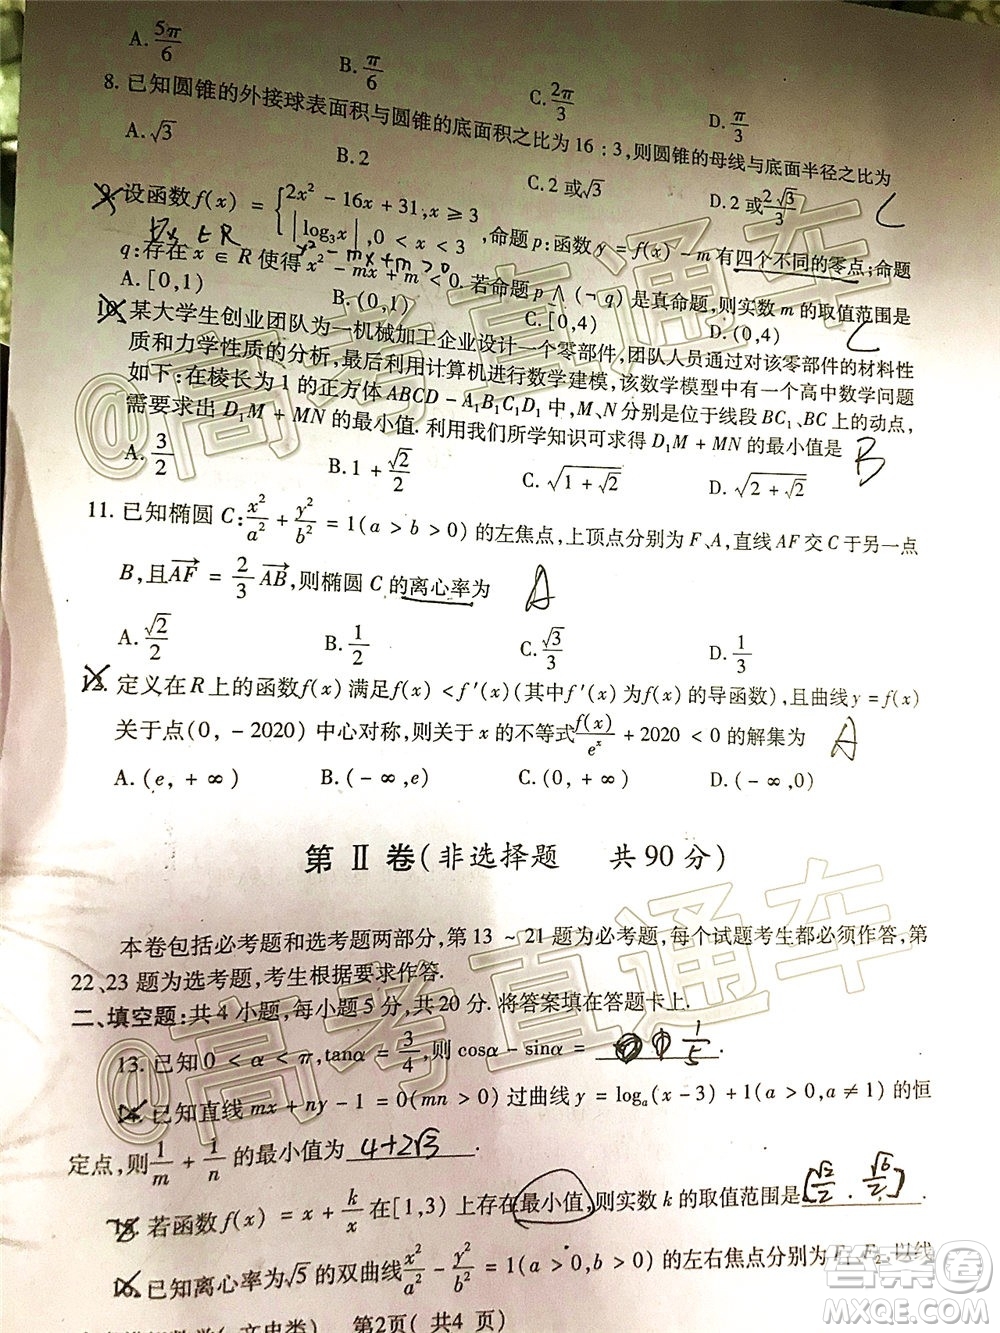 A. 5π/6 B. π/6 C. 2π/3 D. π/3
8. 已知圆锥的外接球表面积与圆锥的底面积之比为 16 : 3,则圆锥的母线与底面半径之比为
A. √3 B. 2 C. 2 或√3 D. 2 或 2√3/3 C
9. 设函数 f(x) = { 2x² - 16x + 31, x ≥ 3
|log₃x|, 0 < x < 3 ,命题 p:函数 y = f(x) - m 有四个不同的零点;命题
∀x ∈ R x² - mx + m ≥ 0
q:存在 x ∈ R 使得 x² - mx + m < 0. 若命题 p ∧ (¬ q) 是真命题,则实数 m 的取值范围是
A. [0,1) B. (0,1) C. [0,4) D. (0,4) C
10. 某大学生创业团队为一机械加工企业设计一个零部件,团队人员通过对该零部件的材料性
质和力学性质的分析,最后利用计算机进行数学建模,该数学模型中有一个高中数学问题
如下:在棱长为 1 的正方体 ABCD - A₁B₁C₁D₁ 中,M、N 分别是位于线段 BC₁、BC 上的动点,
需要求出 D₁M + MN 的最小值. 利用我们所学知识可求得 D₁M + MN 的最小值是 B
A. 3/2 B. 1 + √2/2 C. √(1 + √2) D. √(2 + √2)
11. 已知椭圆 C: x²/a² + y²/b² = 1(a > b > 0) 的左焦点,上顶点分别为 F、A,直线 AF 交 C 于另一点
B,且 AF = 2/3 AB,则椭圆 C 的离心率为 A
A. √2/2 B. 1/2 C. √3/3 D. 1/3
12. 定义在 R 上的函数 f(x) 满足 f(x) < f′(x)(其中 f′(x) 为 f(x) 的导函数),且曲线 y = f(x)
关于点(0, - 2020) 中心对称,则关于 x 的不等式 f(x)/eˣ + 2020 < 0 的解集为 A
A. (e, + ∞) B. (- ∞,e) C. (0, + ∞) D. (- ∞,0)
第 Ⅱ 卷(非选择题 共 90 分)
本卷包括必考题和选考题两部分,第 13 ~ 21 题为必考题,每个试题考生都必须作答,第
22、23 题为选考题,考生根据要求作答.
二、填空题:共 4 小题,每小题 5 分,共 20 分. 将答案填在答题卡上.
13. 已知 0 < α < π,tanα = 3/4,则 cosα - sinα = 1/5
14. 已知直线 mx + ny - 1 = 0(mn > 0) 过曲线 y = logₐ(x - 3) + 1(a > 0,a ≠ 1) 的恒
定点,则 1/m + 1/n 的最小值为 4+2√3 .
15. 若函数 f(x) = x + k/x 在[1,3) 上存在最小值,则实数 k 的取值范围是 [√2/2 , √6/2] .
16. 已知离心率为√5 的双曲线 x²/a² - y²/b² = 1(a > 0,b > 0) 的左右焦点分别为 F₁、F₂,以线
(文史类) 第2页( 共4 页)
@高考直通车
@高考直通车
答案圈
MXQE.COM